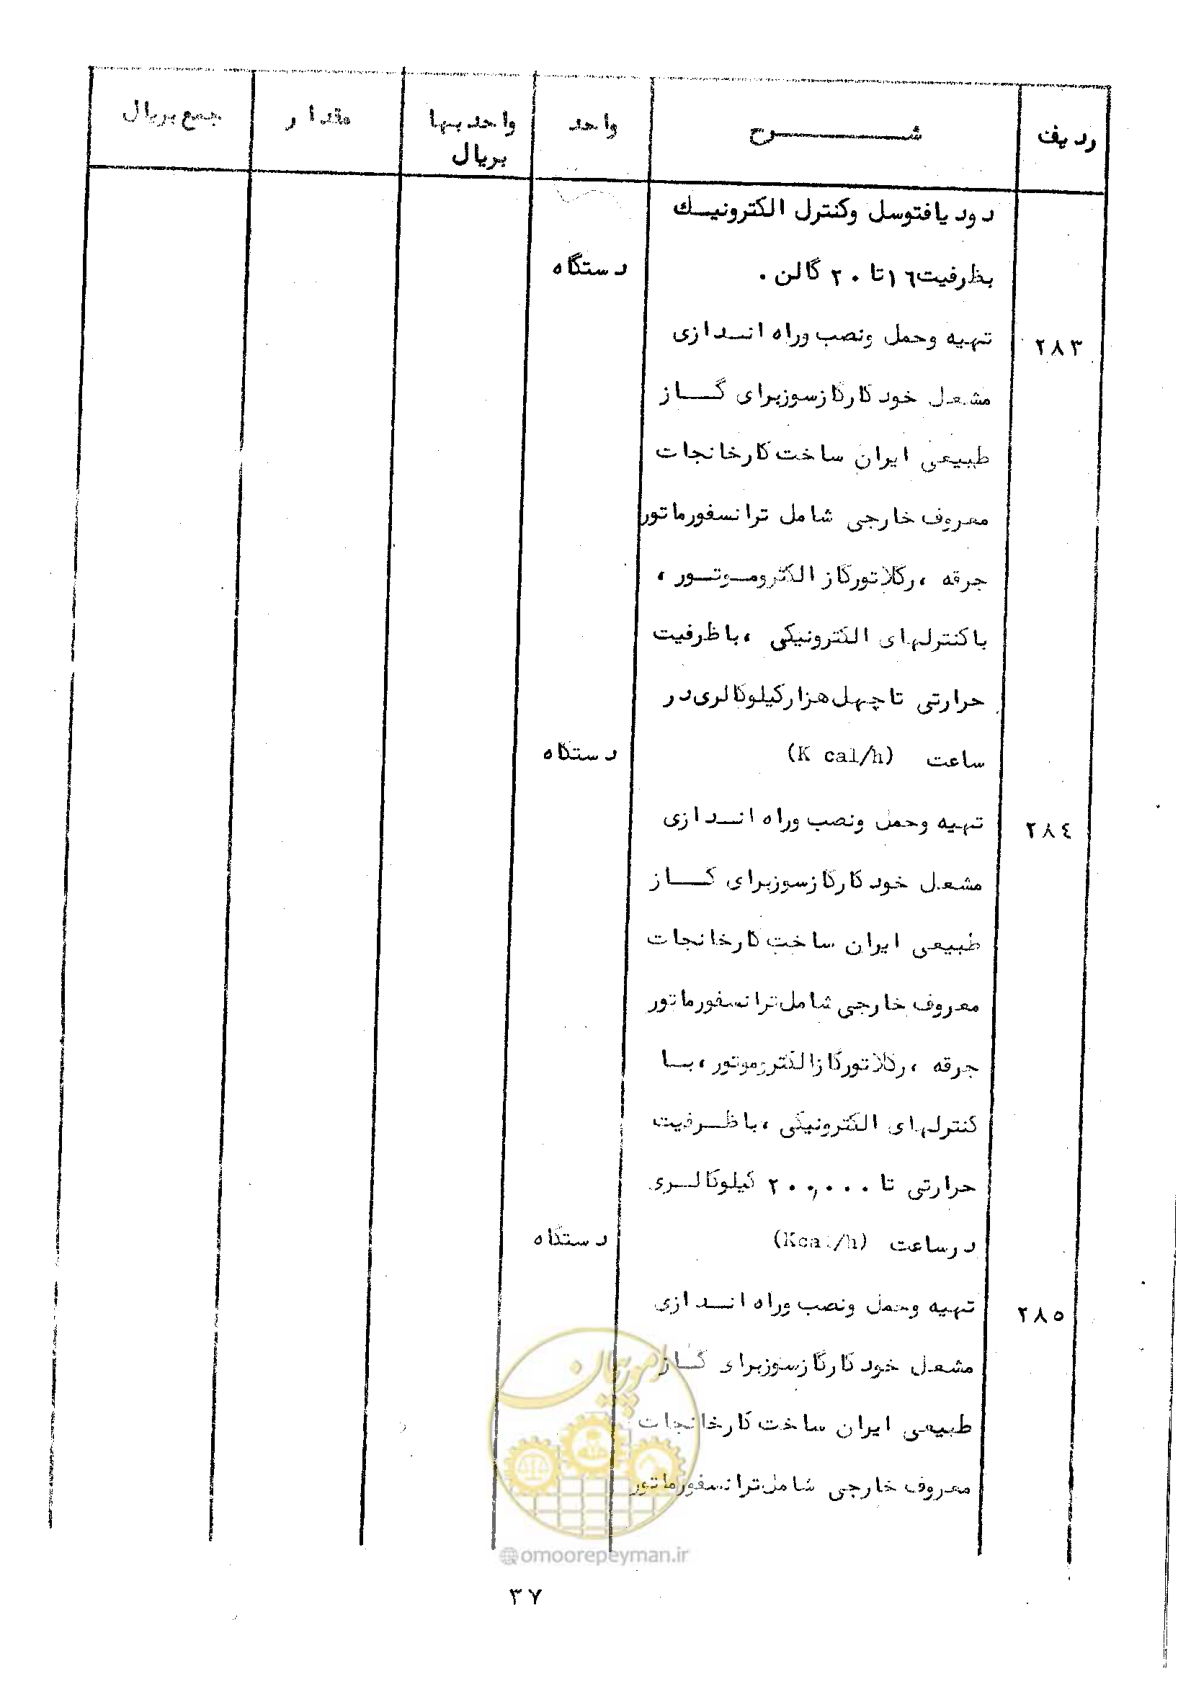 ردیف شرح واحد واحدبها بریال مقدار جمع بریال
دودیا فتوسل وکنترل الکترونیک
بظرفیت ۱۶ تا ۲۰ گالن . دستگاه
۲۸۳ تهیه وحمل ونصب وراه اندازی
مشعل خودکارگازسوزبرای گاز
طبیعی ایران ساخت کارخانجات
معروف خارجی شامل ترانسفورماتور
جرقه ، رگلاتورگاز الکتروموتور ،
باکنترلهای الکترونیکی ، باظرفیت
حرارتی تا چهل هزارکیلوکالری در
ساعت (K cal/h) دستگاه
۲۸٤ تهیه وحمل ونصب وراه اندازی
مشعل خودکارگازسوزبرای گاز
طبیعی ایران ساخت کارخانجات
معروف خارجی شامل ترانسفورماتور
جرقه ، رگلاتورگاز الکتروموتور ، با
کنترلهای الکترونیکی ، باظرفیت
حرارتی تا ۲۰۰,۰۰۰ کیلوکالری
درساعت (Kcal/h) دستگاه
۲۸۵ تهیه وحمل ونصب وراه اندازی
مشعل خودکارگازسوزبرای گاز
طبیعی ایران ساخت کارخانجات
معروف خارجی شامل ترانسفورماتور
امور پیمان
@omoorepeyman.ir
۳۷